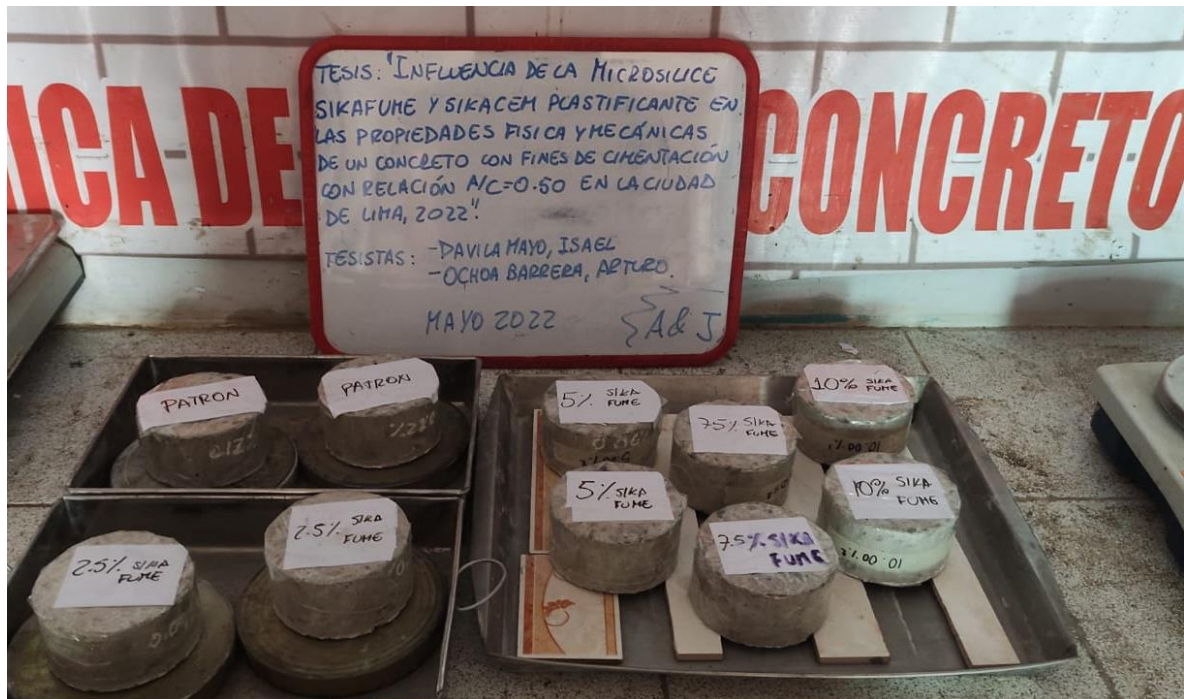 ICA DE CONCRETO
TESIS: "INFLUENCIA DE LA MICROSILICE
SIKAFUME Y SIKACEM PLASTIFICANTE EN
LAS PROPIEDADES FISICA Y MECÁNICAS
DE UN CONCRETO CON FINES DE CIMENTACIÓN
CON RELACIÓN A/C=0.50 EN LA CIUDAD
DE LIMA, 2022".
TESISTAS: -DAVILA MAYO, ISAEL
-OCHOA BARRERA, ARTURO.
MAYO 2022
A & J
PATRON
PATRON
2.5% SIKA
FUME
2.5% SIKA
FUME
5% SIKA
FUME
7.5% SIKA
FUME
10% SIKA
FUME
5% SIKA
FUME
7.5% SIKA
FUME
10% SIKA
FUME
10.00%
10.00%